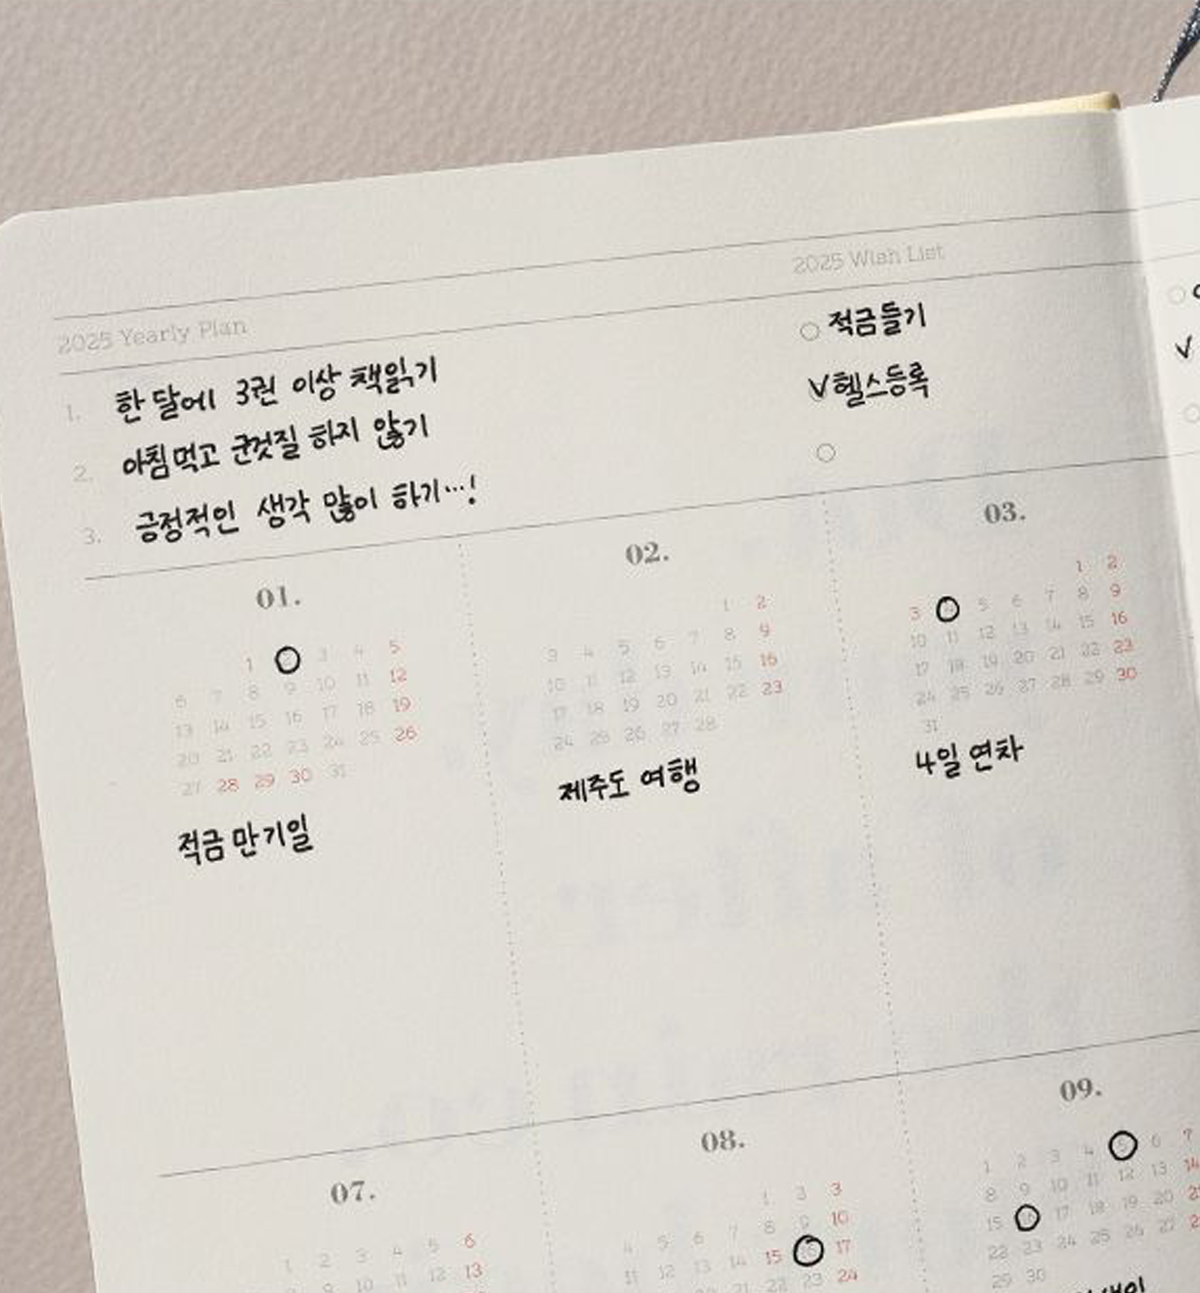 2025 Yearly Plan
2025 Wish List
1. 한 달에 3권 이상 책읽기
2. 아침먹고 군것질 하지 않기
3. 긍정적인 생각 많이 하기...!
적금들기
V 헬스등록
V
01.
1 3 4 5
6 7 8 9 10 11 12
13 14 15 16 17 18 19
20 21 22 23 24 25 26
27 28 29 30 31
적금 만기일
02.
1 2
3 4 5 6 7 8 9
10 11 12 13 14 15 16
17 18 19 20 21 22 23
24 25 26 27 28
제주도 여행
03.
1 2
3 5 6 7 8 9
10 11 12 13 14 15 16
17 18 19 20 21 22 23
24 25 26 27 28 29 30
31
4일 연차
07.
1 2 3 4 5 6
9 10 11 12 13
08.
1 2 3
4 5 6 7 8 9 10
11 12 13 14 15 17
21 22 23 24
09.
1 2 3 4 5 6 7
8 9 10 11 12 13 14
15 17 18 19 20
22 23 24 25 26 27
29 30